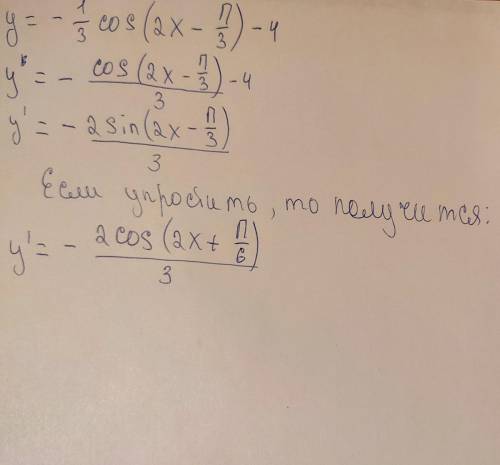 y = - 1/3 cos(2x - π/3) - 4
y' = - cos(2x - π/3)/3 - 4
y' = - 2sin(2x - π/3)/3
Если упростить, то получится:
y' = - 2cos(2x + π/6)/3